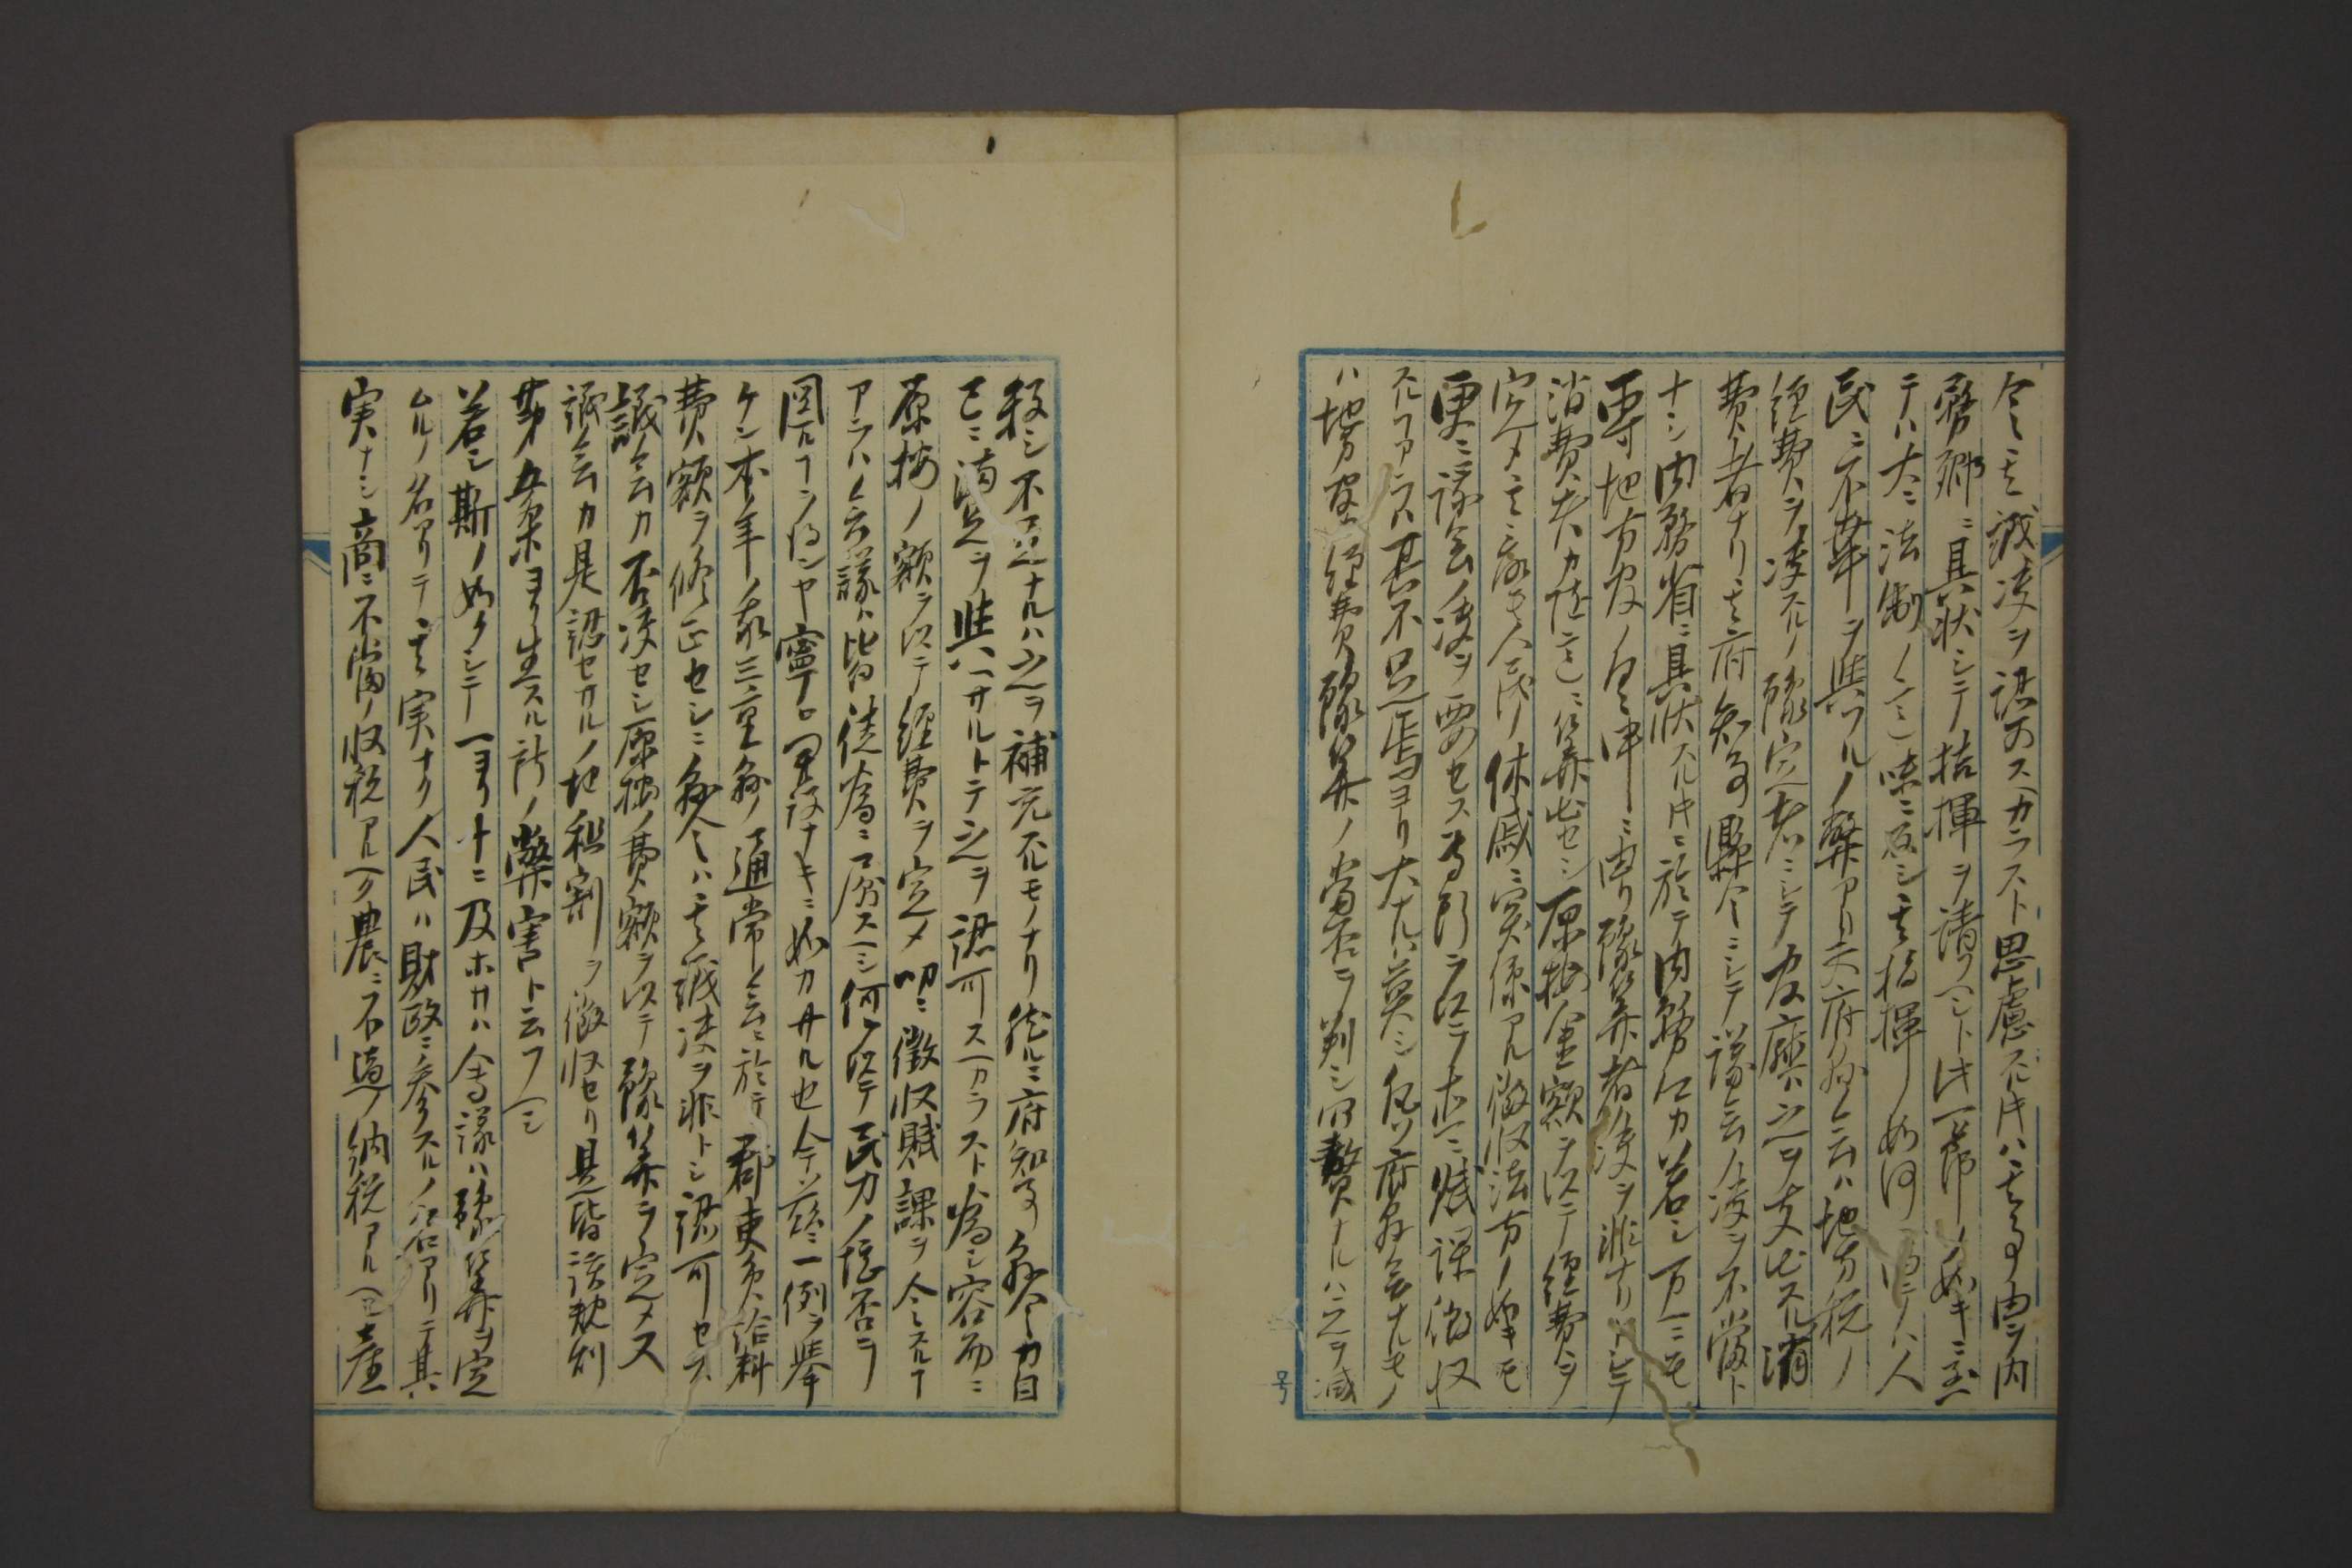 令其議決ヲ認可スヘカラスト思慮スル片ハ其事由ヲ内
務卿ニ具状シテ指揮ヲ請フヘシト此一節ノ如キニ至
テハ大ニ法制ノ意味ニ反シ其指揮ノ如何ニ因テハ人
民ニ不幸ヲ與フルノ弊アリ夫府縣会ハ地方税ノ
経費ヲ決スルノ豫定者ニシテ官廳ハ之ヲ支出スル消
費者ナリ其府知事縣令ニシテ議会ノ決ヲ不當ト
ナシ内務省ニ具状スル片ニ於テ内務卿カ若シ万一ニモ
専ハラ地方官ノ具申ニ由リ豫算者ノ決ヲ非ナリトシテ
消費者カ随意ニ算出セシ原按金額ヲ以テ経費ヲ
定メ其ニ家其人民ノ休戚ニ関係アル徴収法方ノ如キモ
更ニ議会ノ決ヲ要セス專断ヲ以テ亦之ニ賦課徴収
スルコアラハ其不足焉ヨリ大ナルハ莫シ仮ヒ府縣会ナルモノ
ハ地方官経費豫算ノ當否ヲ判シ冗贅ナルハ之ヲ減
殺シ不足ナルハ之ヲ補充スルモノナリ然ルニ府知事縣令カ自
己ニ満足ヲ與ヘサルトテ之ヲ認可スヘカラスト為シ容易ニ
原按ノ額ヲ以テ経費ヲ定メ叨ニ徴収賦課ヲ令スルコ
アラハ会議ハ皆徒為ニ屬スヘシ何ヲ以テ民力ノ堪否ヲ
図ルコヲ得ンヤ寧ロ開設ナキニ如カサル也今茲ニ一例ヲ挙
ケン本年ノ我三重縣ノ通常会ニ於テ郡吏員給料
費額ヲ修正セシニ縣令ハ其議決ヲ非トシ認可セス
議会カ否決セシ原按ノ費額ヲ以テ豫算ヲ定メ又
議会カ是認セサルノ地租割ヲ徴収セリ是皆該規則
第五条ヨリ生スル所ノ弊害ト云フヘシ
若シ斯ノ如クシテ一ヨリ十ニ及ホサハ会議ハ豫算ヲ定
ムルノ名アリテ其実ナク人民ハ財政ニ参スルノ名アリテ其
実ナシ商ニ不當ノ収税アルヘク農ニ不適ノ納税アルヘシ産
号